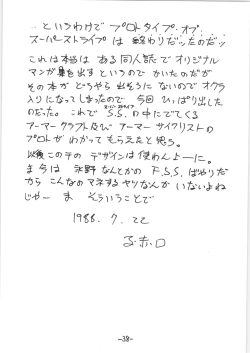 …というわけで プロトタイプ・オブ・
スーパーストライプ は 終わりだったのだッ
これは本当は ある同人誌で オリジナル
マンガ集を出す というので かいたのだが
その本が どうやら 出そうにないので オクラ
入りになってしまったので 今回 ひっぱり出した
のだった。 これで S.S. の中にでてくる
アーマークラフト 及び アーマーサイクリストの
プロトが わかって もらえたと思う。
以後この手の デザインは 使わんよーに。
ま 今は 永野 なんとかの F.S.S. ばやりだ
から こんなのマネするヤツなんか いないよね
じゃー ま そういうことで
1986. 7. 22
-38-